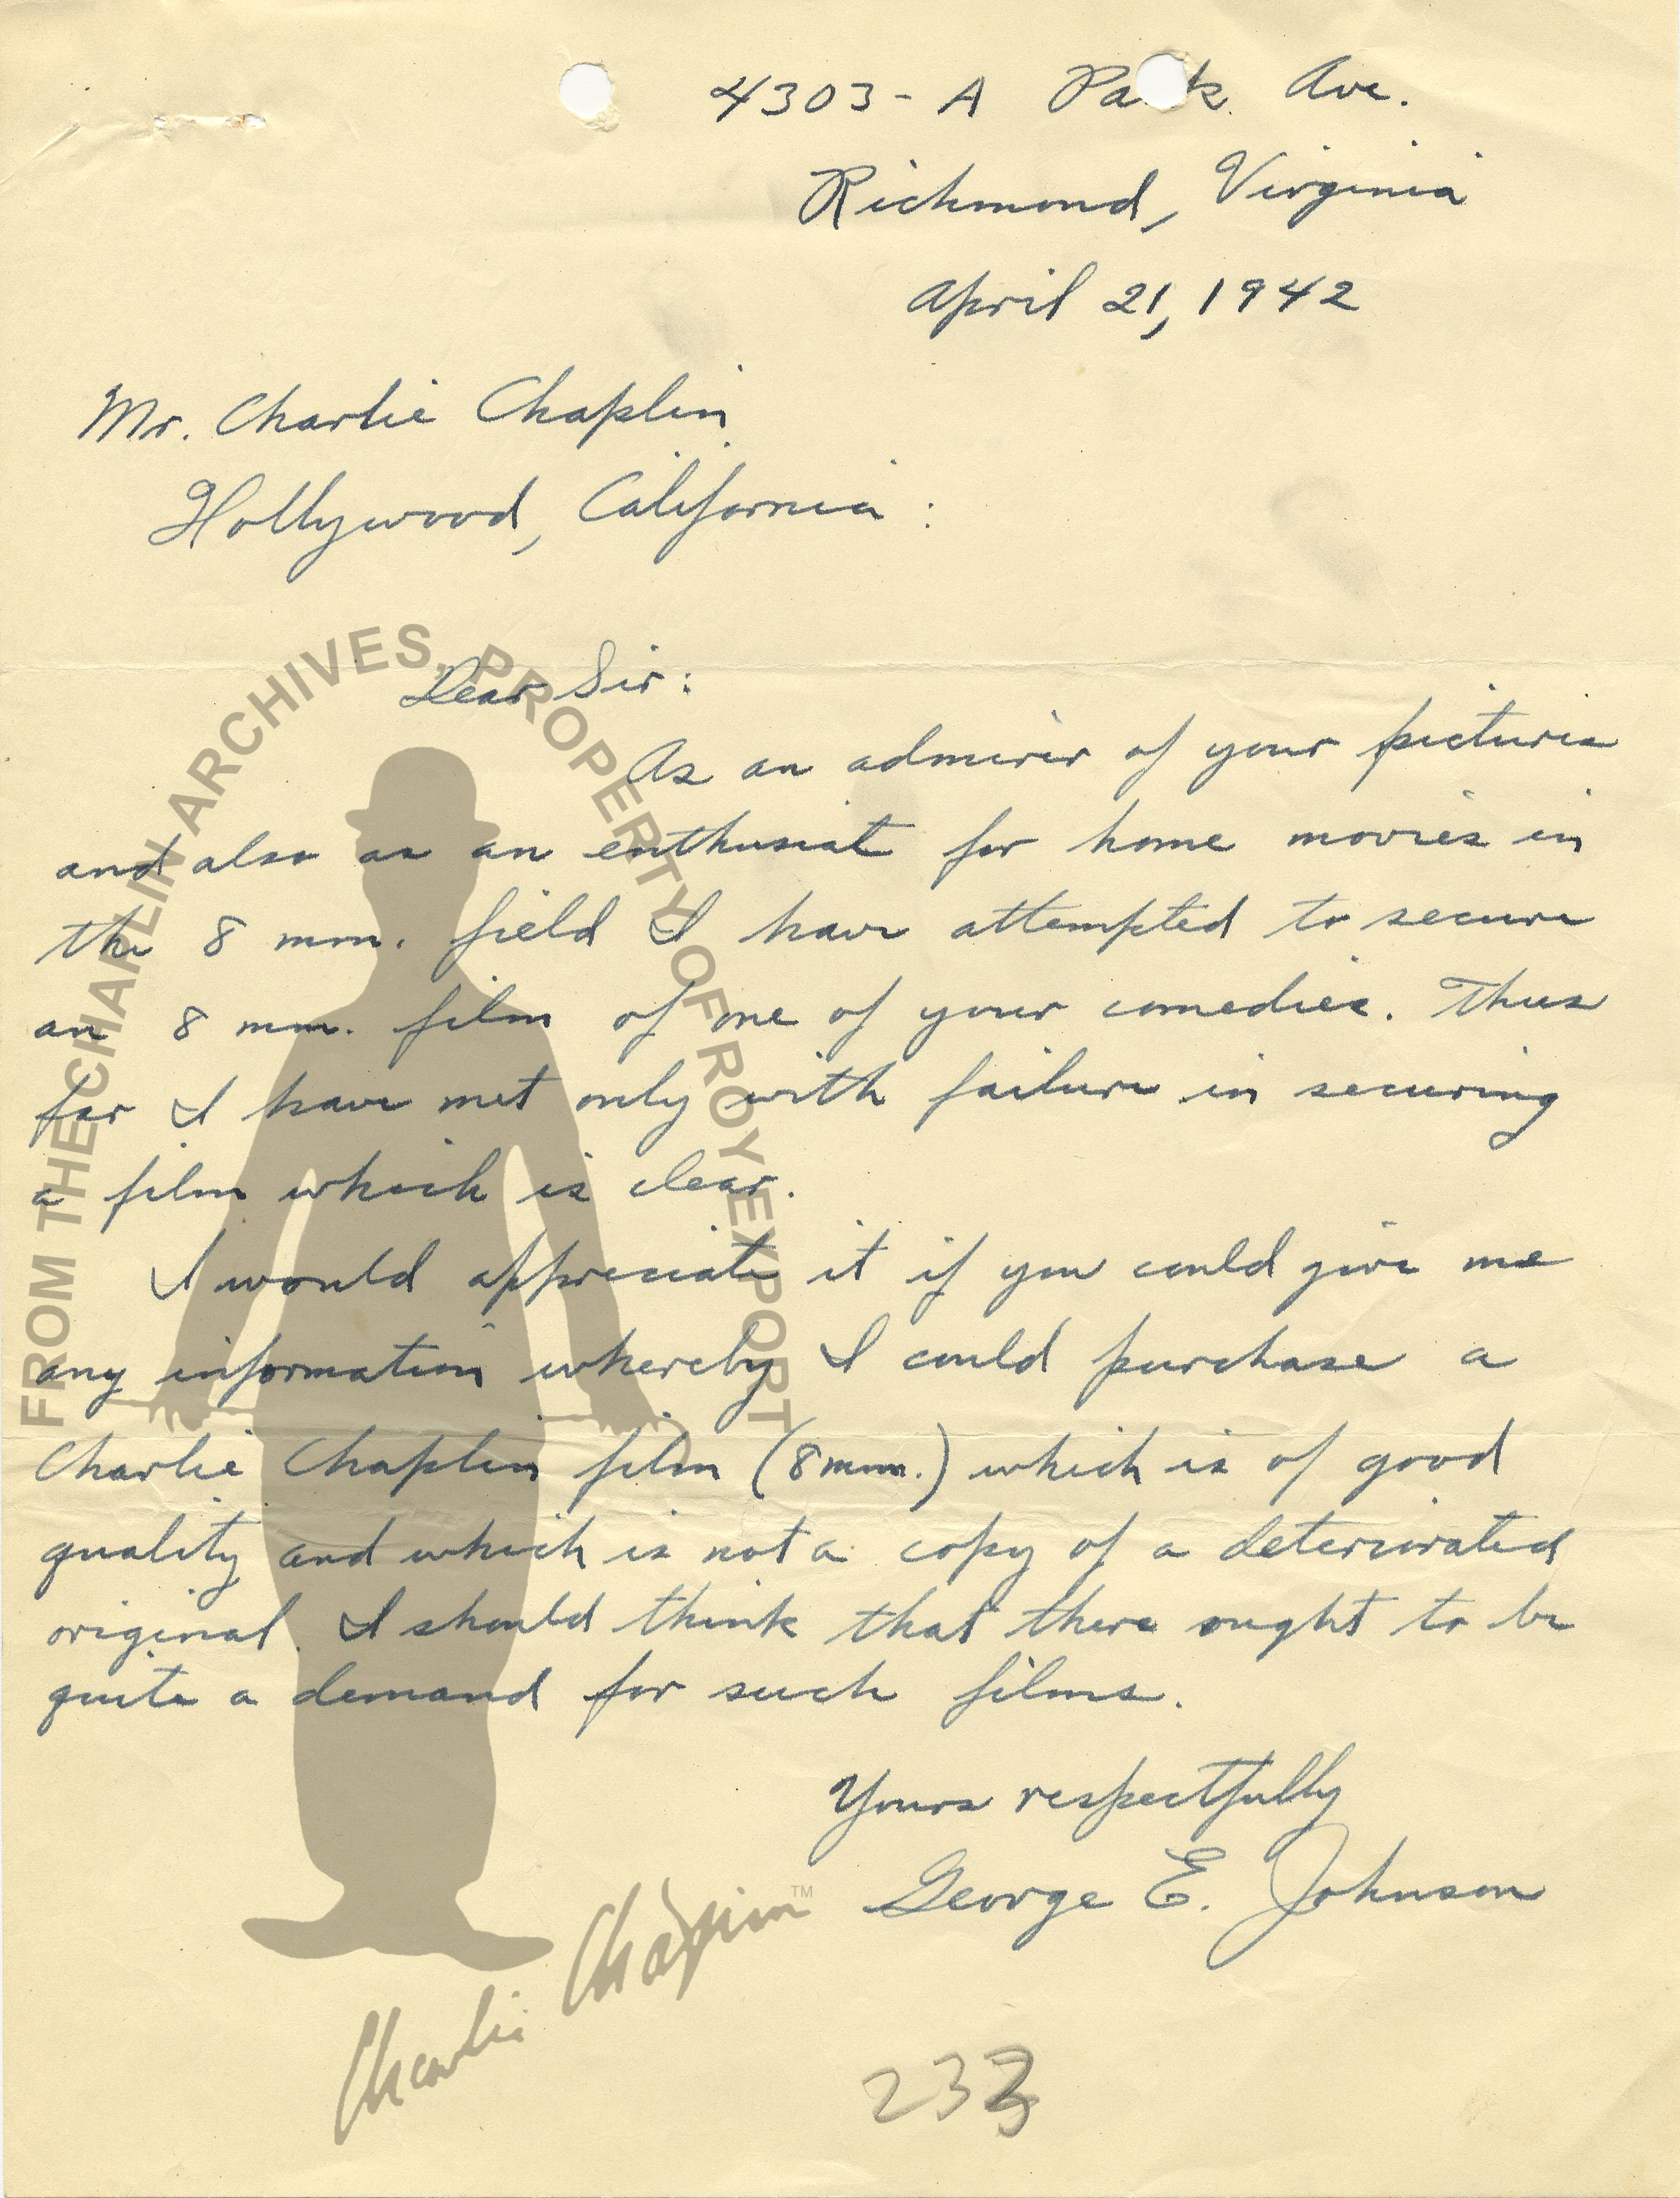 4303-A Park Ave.
Richmond, Virginia
April 21, 1942
Mr. Charlie Chaplin
Hollywood, California:
Dear Sir:
As an admirer of your pictures
and also as an enthusiast for home movies in
the 8 mm. field I have attempted to secure
an 8 mm. film of one of your comedies. Thus
far I have met only with failure in securing
a film which is clear.
I would appreciate it if you could give me
any information whereby I could purchase a
Charlie Chaplin film (8mm.) which is of good
quality and which is not a copy of a deteriorated
original. I should think that there ought to be
quite a demand for such films.
Yours respectfully
George E. Johnson
233
FROM THE CHAPLIN ARCHIVES, PROPERTY OF ROY EXPORT
Charlie Chaplin™